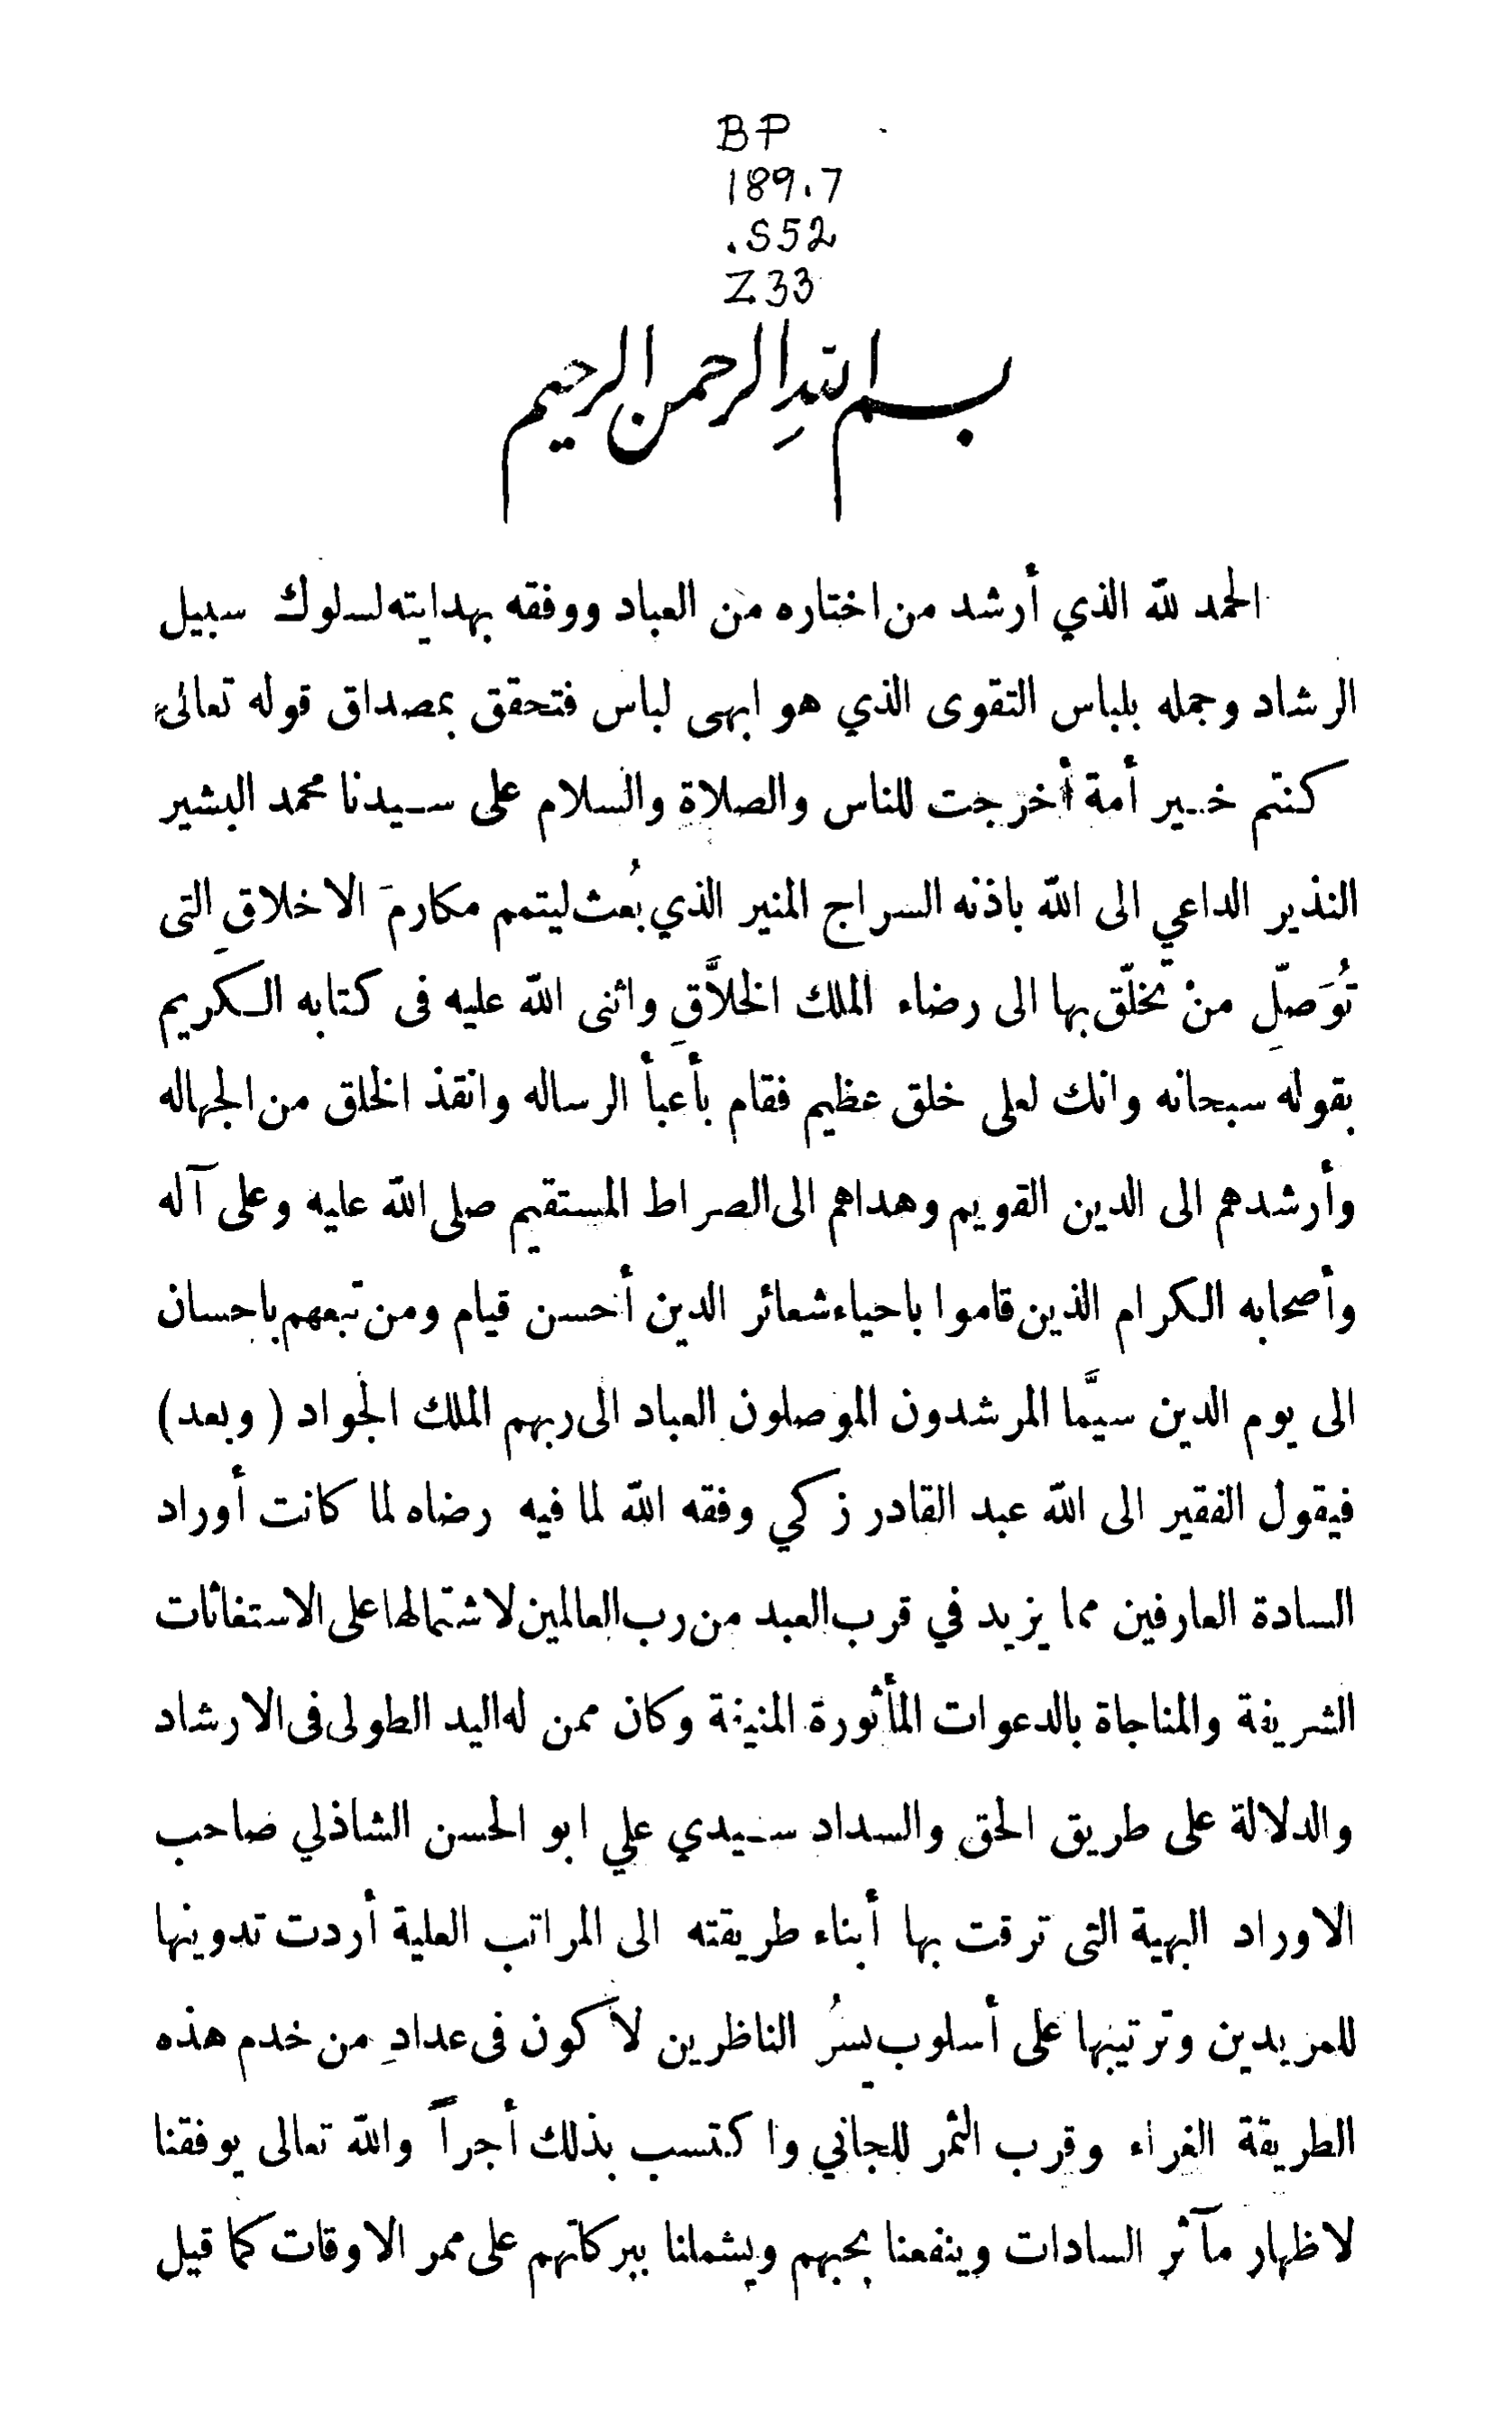 BP
189.7
.S52
Z33
بسم الله الرحمن الرحيم
الحمد لله الذي أرشد من اختاره من العباد ووفقه بهدايته لسلوك سبيل
الرشاد وجمله بلباس التقوى الذي هو ابهى لباس فتحقق بمصداق قوله تعالى
كنتم خير أمة أخرجت للناس والصلاة والسلام على سيدنا محمد البشير
النذير الداعي الى الله باذنه السراج المنير الذي بُعث ليتمم مكارمَ الاخلاقِ التى
تُوَصلِّ منْ تخلّق بها الى رضاء الملك الخلاَّقِ واثنى الله عليه فى كتابه الكريم
بقوله سبحانه وانك لعلى خلق عظيم فقام بأعبأ الرساله وانقذ الخلق من الجهاله
وأرشدهم الى الدين القويم وهداهم الى الصراط المستقيم صلى الله عليه وعلى آله
وأصحابه الكرام الذين قاموا باحياء شعائر الدين أحسن قيام ومن تبعهم باحسان
الى يوم الدين سيَّما المرشدون الموصلون العباد الى ربهم الملك الجواد ( وبعد)
فيقول الفقير الى الله عبد القادر زكي وفقه الله لما فيه رضاه لما كانت أوراد
السادة العارفين مما يزيد في قرب العبد من رب العالمين لاشتمالها على الاستغاثات
الشريفة والمناجاة بالدعوات المأثورة المنيفة وكان ممن له اليد الطولى فى الارشاد
والدلالة على طريق الحق والسداد سيدي علي ابو الحسن الشاذلي صاحب
الاوراد البهية التى ترقت بها أبناء طريقته الى المراتب العلية أردت تدوينها
للمريدين وترتيبها على أسلوب يسرُ الناظرين لأكون فى عدادِ من خدم هذه
الطريقة الغراء وقرب الثمر للجاني واكتسب بذلك أجراً والله تعالى يوفقنا
لاظهار مآثر السادات وينفعنا بحبهم ويشملنا ببركاتهم على ممر الاوقات كما قيل